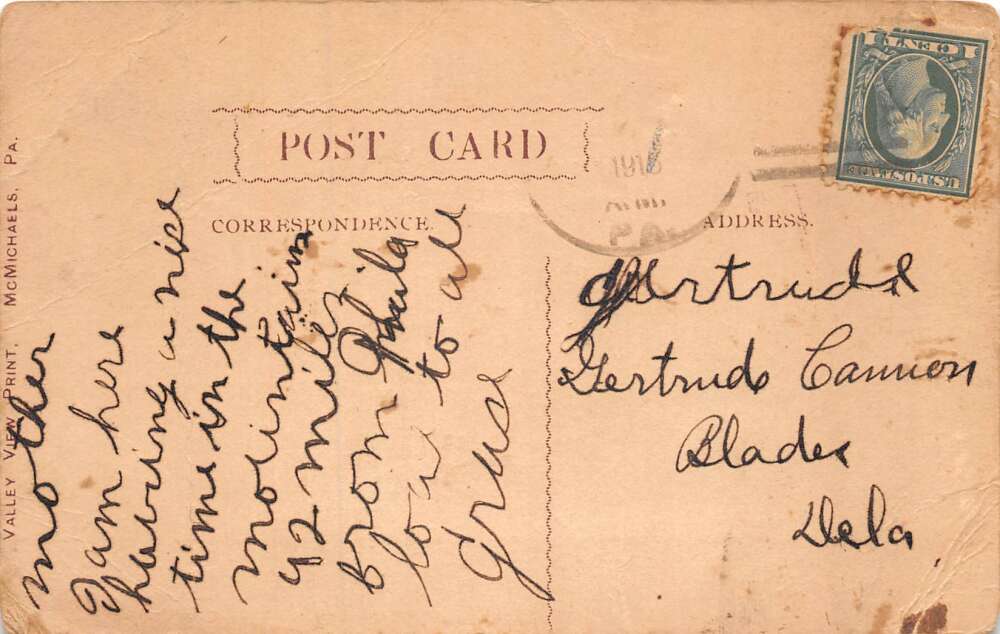 VALLEY VIEW PRINT, MCMICHAELS, PA.
POST CARD
CORRESPONDENCE.
ADDRESS.
PA.
1 CENT 1
U.S. POSTAGE
mother
I am here
having a nise
time in the
mointains
92 miles
from Phila
love to all
Gertrude
Gertrude Cannon
Blades
Dela